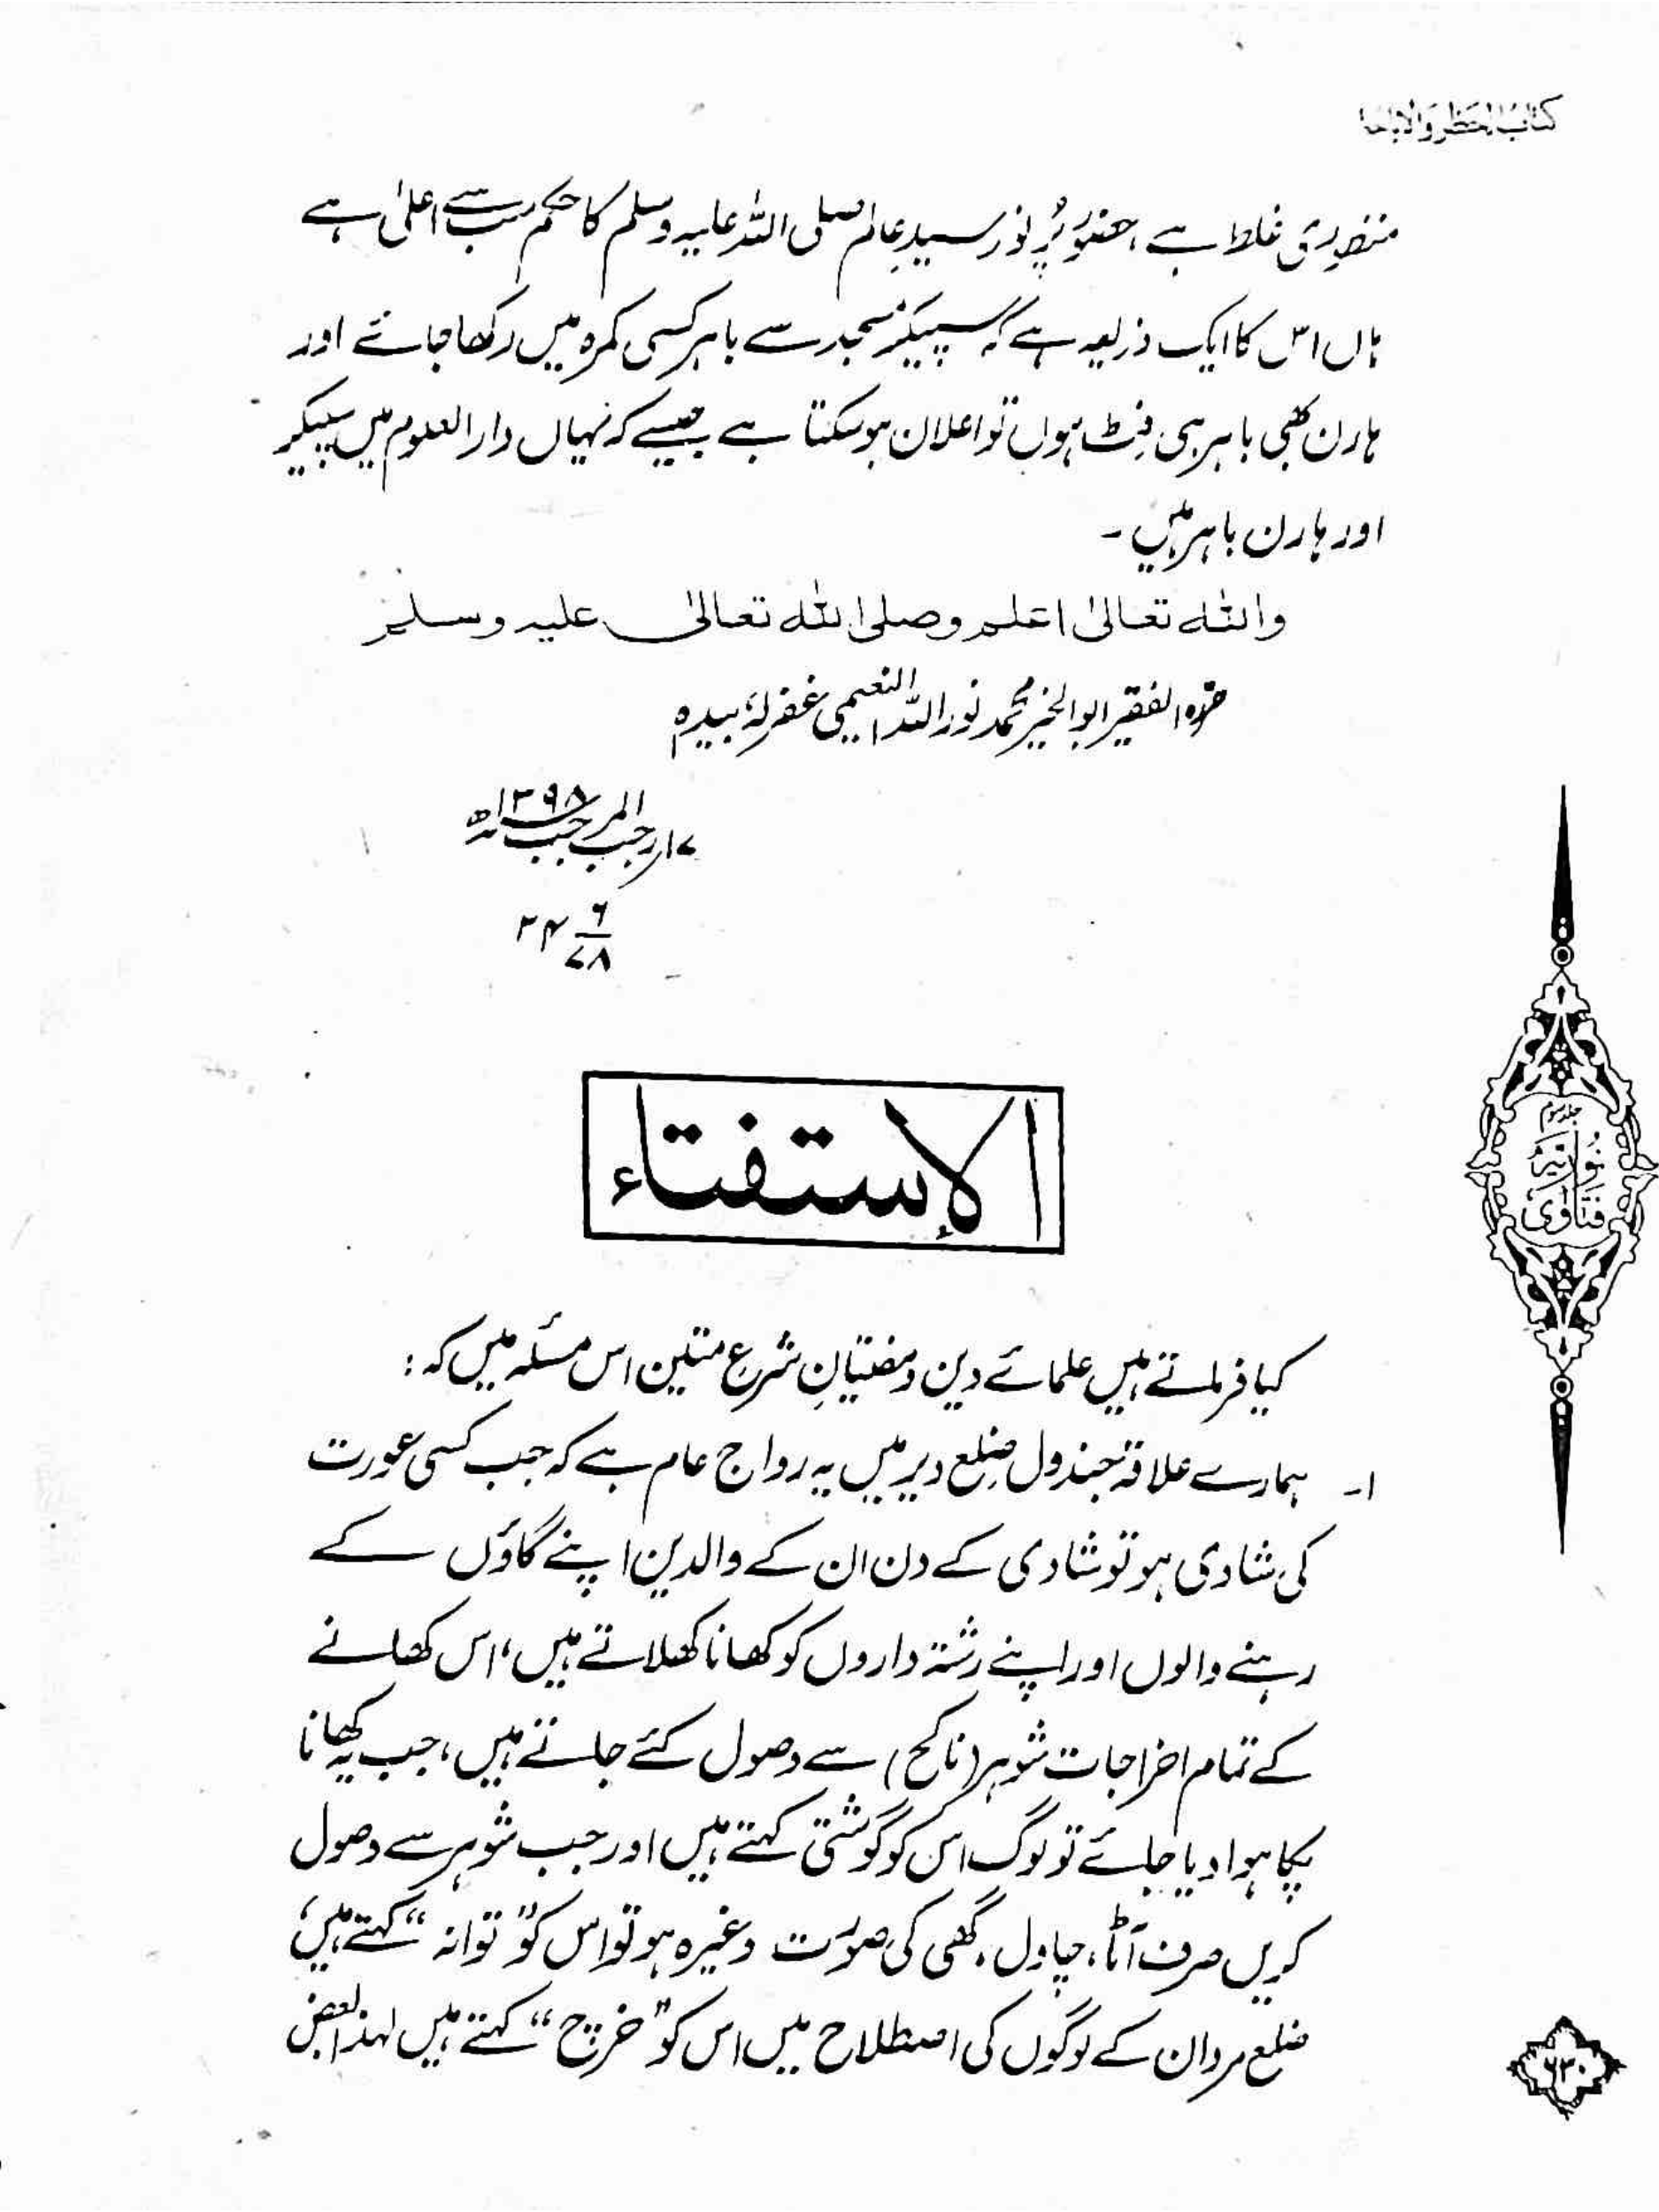 کتاب الحظر والاباحۃ
منظوری غلط ہے، حضور پُر نور سیدِ عالم صلی اللہ علیہ وسلم کا حکم سب سے اعلیٰ ہے
ہاں اس کا ایک ذریعہ ہے کہ سپیکر مسجد سے باہر کسی کمرہ میں رکھا جائے اور
ہارن بھی باہر ہی فِٹ ہوں تو اعلان ہو سکتا ہے جیسے کہ یہاں دارالعلوم میں سپیکر
اور ہارن باہر ہیں ۔
واللہ تعالیٰ اعلم وصلی اللہ تعالیٰ علیہ وسلم
حررہ الفقیر ابوالخیر محمد نور اللہ النعیمی غفرلہٗ بیدہ
۱۷ رجب المرجب ۱۳۹۸ھ
۲۴ ۶/۷۸
الإستفتاء
کیا فرماتے ہیں علمائے دین و مفتیانِ شرع متین اس مسئلہ میں کہ :
۱۔ ہمارے علاقہ جندول ضلع دیر میں یہ رواج عام ہے کہ جب کسی عورت
کی شادی ہو تو شادی کے دن ان کے والدین اپنے گاؤں کے
رہنے والوں اور اپنے رشتہ داروں کو کھانا کھلاتے ہیں، اس کھانے
کے تمام اخراجات شوہر (ناکح) سے وصول کئے جاتے ہیں، جب یہ کھانا
پکا ہوا دیا جائے تو لوگ اس کو گوشتی کہتے ہیں اور جب شوہر سے وصول
کریں صرف آٹا، چاول، گھی کی صورت وغیرہ ہو تو اس کو ”توانہ“ کہتے ہیں،
ضلع مردان کے لوگوں کی اصطلاح میں اس کو ”خرچ“ کہتے ہیں لہذا بعض
جلد سوم
نوریہ
فتاویٰ
۶۳۰